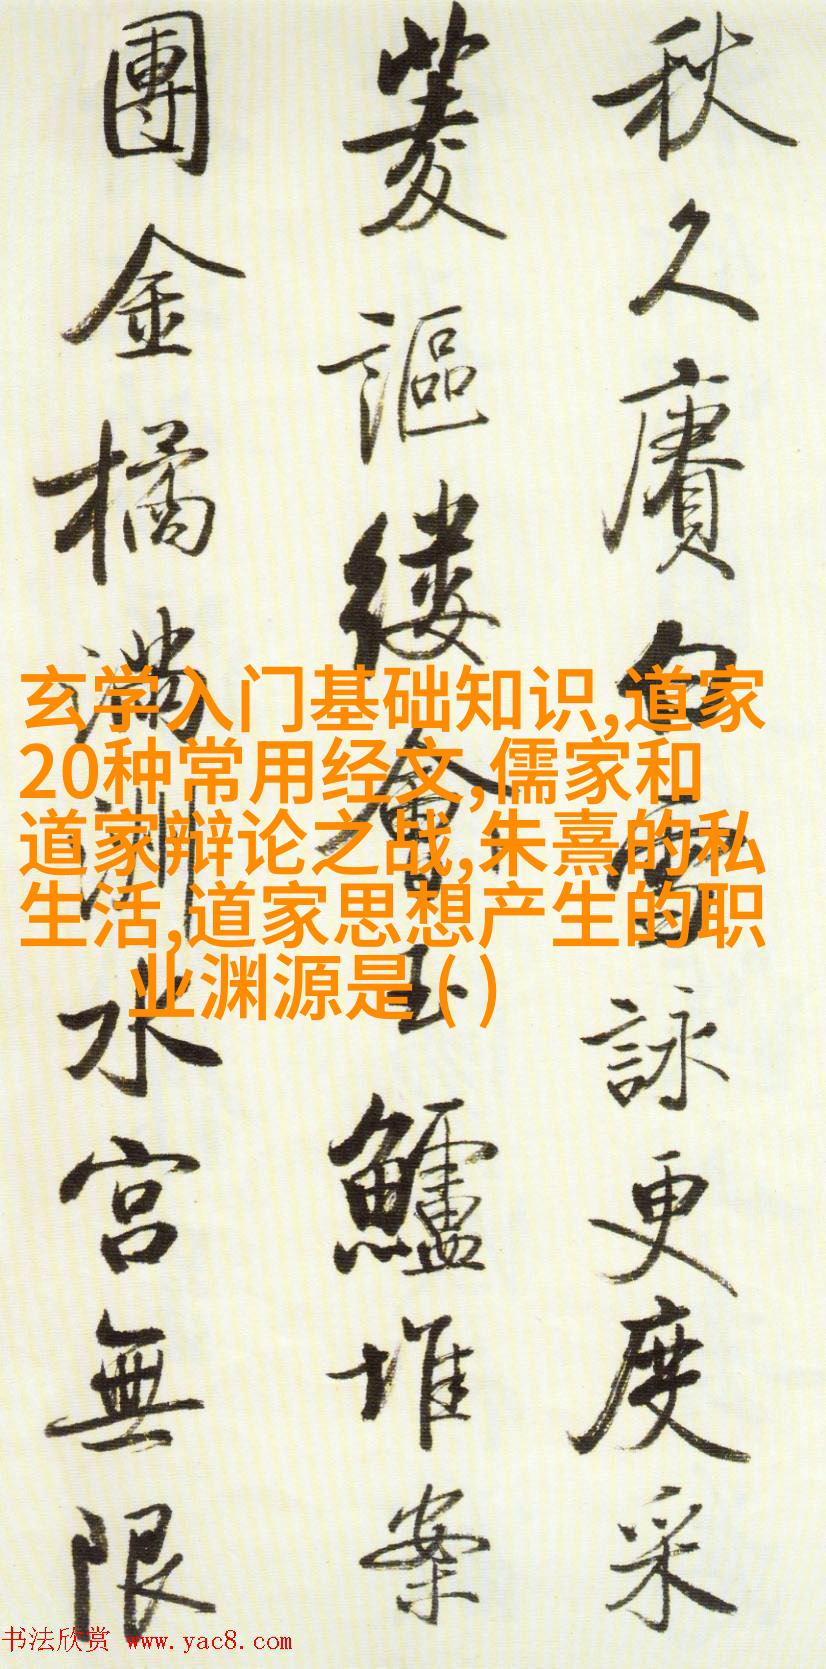 秋久賡白雪詠更度采
菱謳縷會玉鱸堆案
團金橘滿洲水宮無限
玄学入门基础知识,道家
20种常用经文,儒家和
道家辩论之战,朱熹的私
生活,道家思想产生的职
业渊源是( )
书法欣赏 www.yac8.com